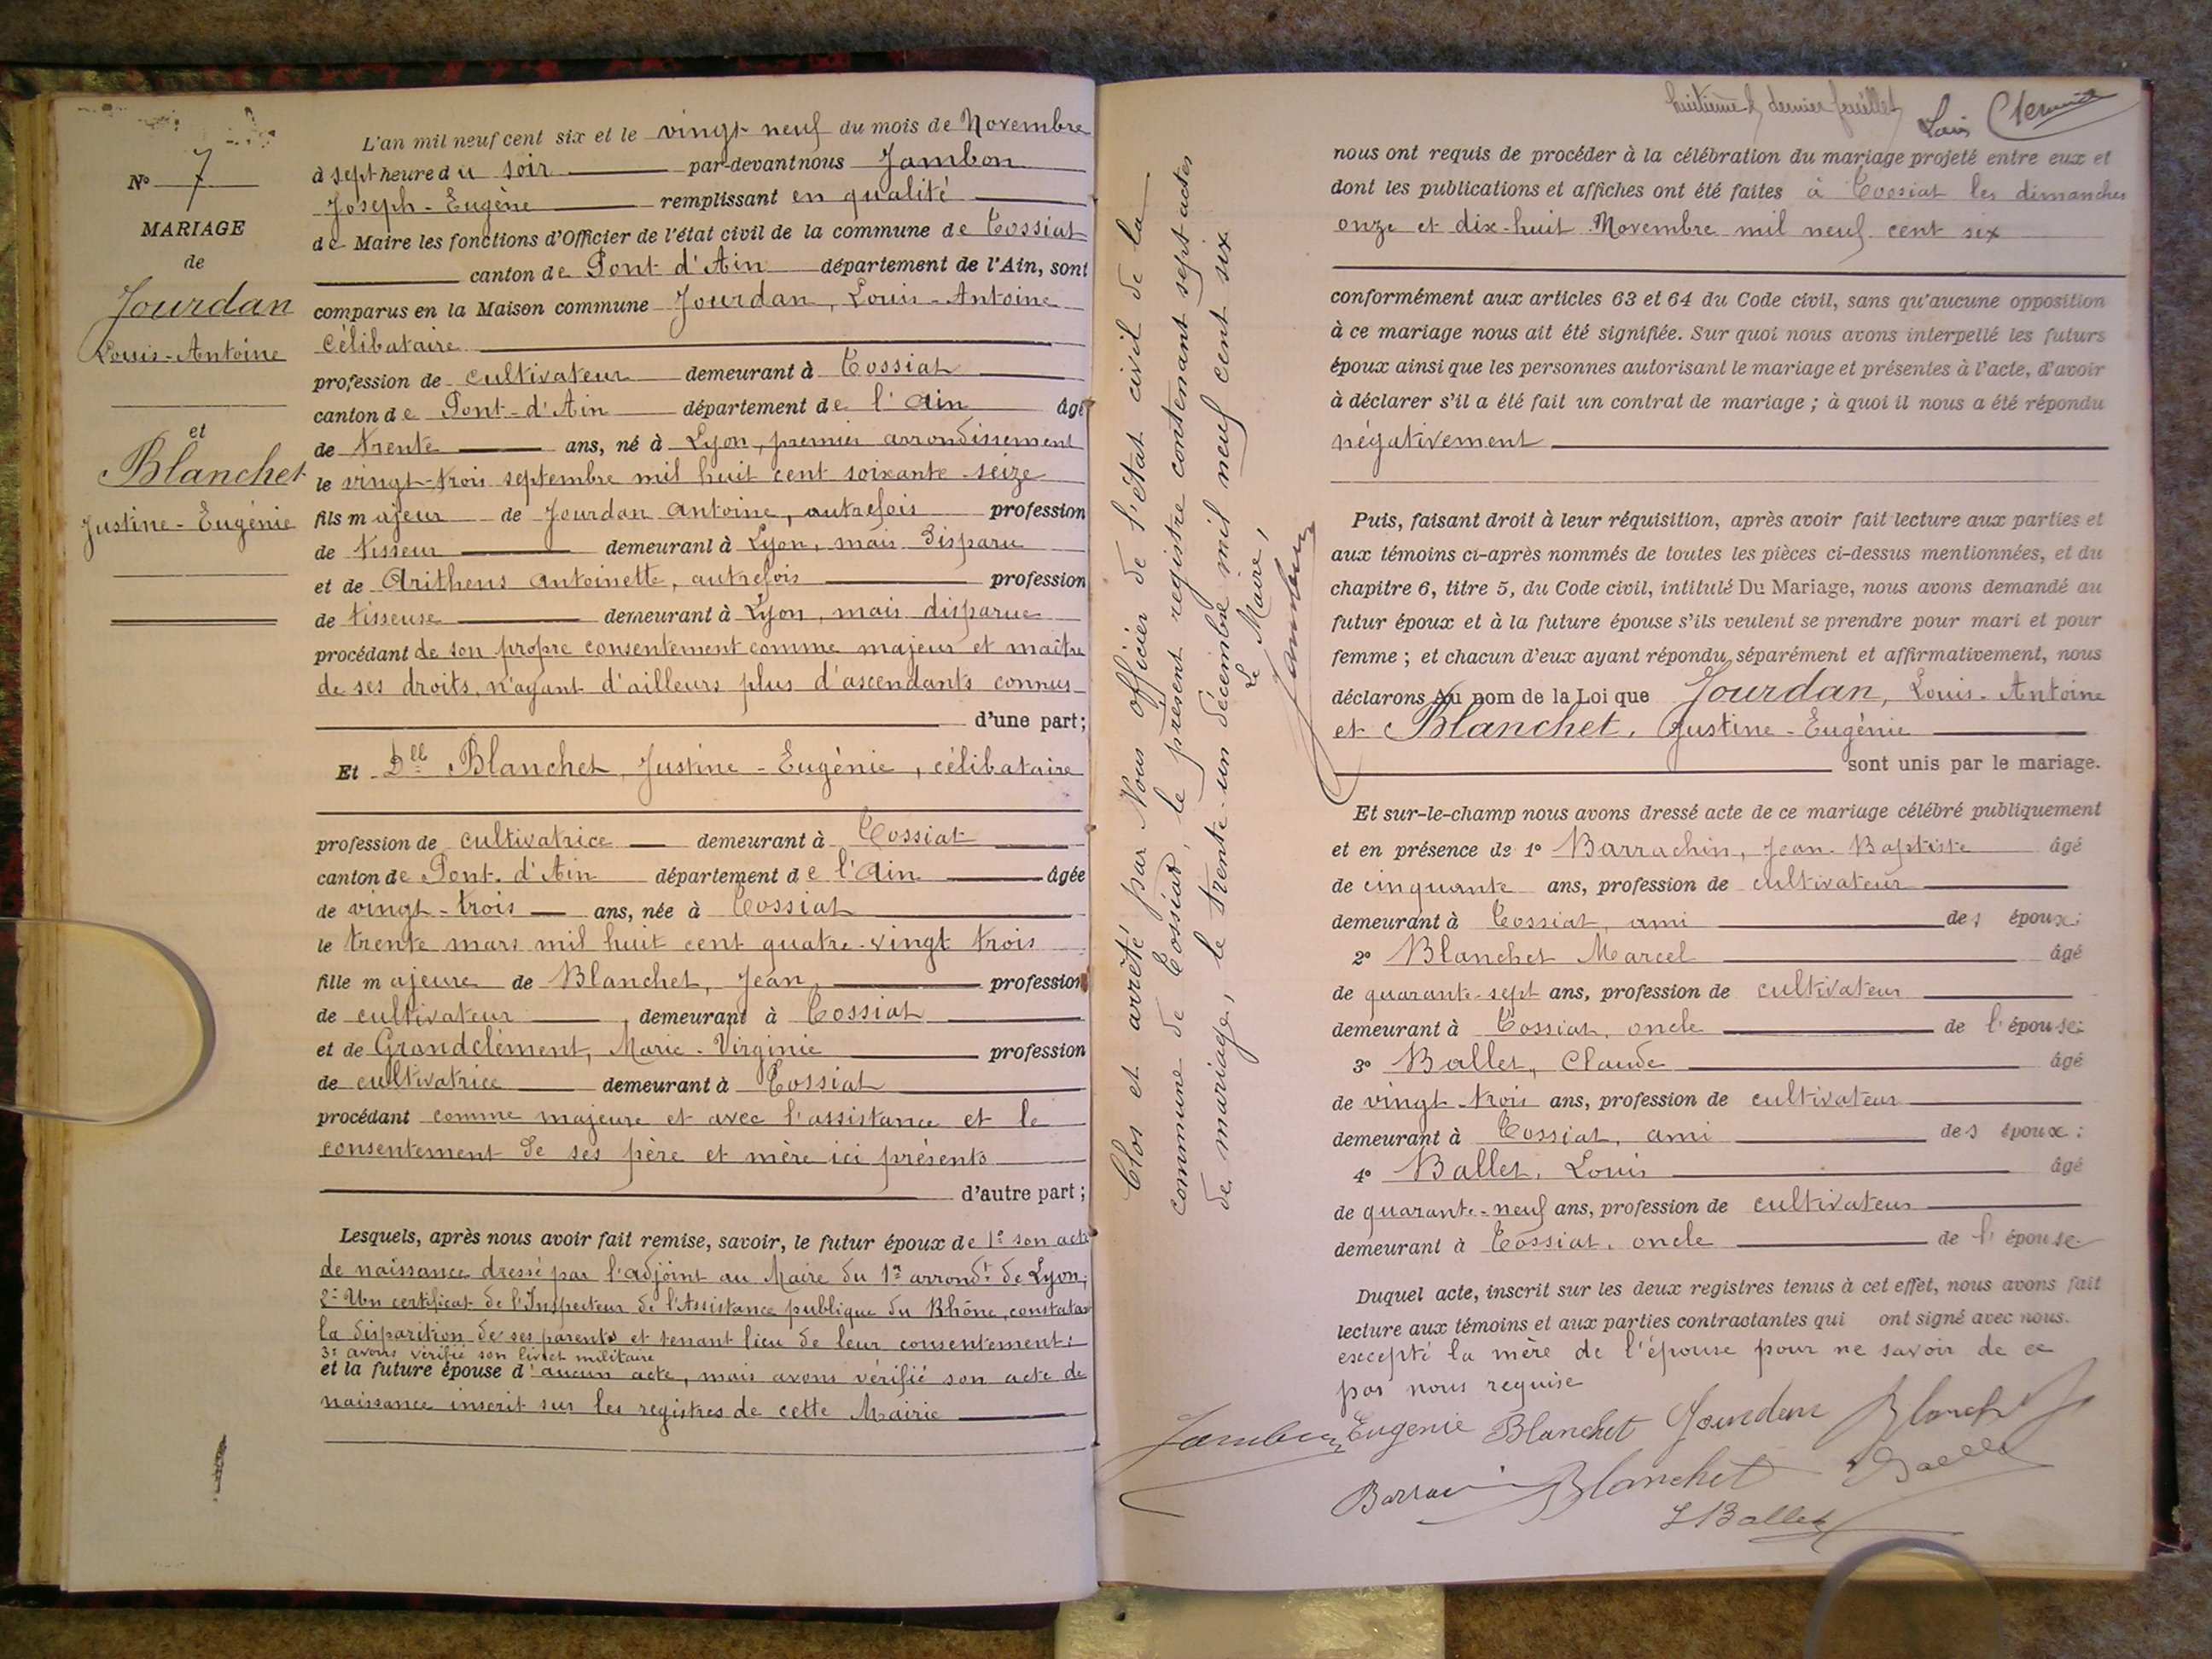 N° 7
MARIAGE
de
Jourdan
Louis-Antoine
et
Blanchet
Justine-Eugénie
L'an mil neuf cent six et le vingt-neuf du mois de Novembre
à sept heure du soir par-devant nous Jambon
Joseph-Eugène remplissant en qualité
de Maire les fonctions d'Officier de l'état civil de la commune de Tossiat
canton de Pont d'Ain département de l'Ain, sont
comparus en la Maison commune Jourdan, Louis-Antoine
célibataire
profession de cultivateur demeurant à Tossiat
canton de Pont-d'Ain département de l'Ain âgé
de trente ans, né à Lyon, premier arrondissement
le vingt-trois septembre mil huit cent soixante-seize
fils majeur de Jourdan Antoine, autrefois profession
de tisseur demeurant à Lyon, mais disparu
et de Arithens Antoinette, autrefois profession
de tisseuse demeurant à Lyon, mais disparue
procédant de son propre consentement comme majeur et maître
de ses droits, n'ayant d'ailleurs plus d'ascendants connus
d'une part;
Et Dlle Blanchet, Justine-Eugénie, célibataire
profession de cultivatrice demeurant à Tossiat
canton de Pont-d'Ain département de l'Ain âgée
de vingt-trois ans, née à Tossiat
le trente mars mil huit cent quatre-vingt trois
fille majeure de Blanchet, Jean, profession
de cultivateur, demeurant à Tossiat
et de Grandclément, Marie-Virginie profession
de cultivatrice demeurant à Tossiat
procédant comme majeure et avec l'assistance et le
consentement de ses père et mère ici présents
d'autre part;
Lesquels, après nous avoir fait remise, savoir, le futur époux de 1° son acte
de naissance dressé par l'adjoint au Maire du 1er arrondt de Lyon;
2° Un certificat de l'Inspecteur de l'Assistance publique du Rhône, constatant
la disparition de ses parents et tenant lieu de leur consentement;
3° avons vérifié son livret militaire
et la future épouse d'aucun acte, mais avons vérifié son acte de
naissance inscrit sur les registres de cette Mairie
Clos et arrêté par Nous officier de l'état civil de la
commune de Tossiat, le présent registre contenant sept actes
de mariage, le trente-un décembre mil neuf cent six
Le Maire,
Jambon
huitième & dernier feuillet
nous ont requis de procéder à la célébration du mariage projeté entre eux et
dont les publications et affiches ont été faites à Tossiat les dimanches
onze et dix-huit Novembre mil neuf cent six
conformément aux articles 63 et 64 du Code civil, sans qu'aucune opposition
à ce mariage nous ait été signifiée. Sur quoi nous avons interpellé les futurs
époux ainsi que les personnes autorisant le mariage et présentes à l'acte, d'avoir
à déclarer s'il a été fait un contrat de mariage; à quoi il nous a été répondu
négativement
Puis, faisant droit à leur réquisition, après avoir fait lecture aux parties et
aux témoins ci-après nommés de toutes les pièces ci-dessus mentionnées, et du
chapitre 6, titre 5, du Code civil, intitulé Du Mariage, nous avons demandé au
futur époux et à la future épouse s'ils veulent se prendre pour mari et pour
femme; et chacun d'eux ayant répondu séparément et affirmativement, nous
déclarons Au nom de la Loi que Jourdan, Louis-Antoine
et Blanchet, Justine-Eugénie
sont unis par le mariage.
Et sur-le-champ nous avons dressé acte de ce mariage célébré publiquement
et en présence de 1° Barrachin, Jean-Baptiste âgé
de cinquante ans, profession de cultivateur
demeurant à Tossiat, ami des époux;
2° Blanchet Marcel âgé
de quarante-sept ans, profession de cultivateur
demeurant à Tossiat, oncle de l'épouse;
3° Ballet, Claude âgé
de vingt-trois ans, profession de cultivateur
demeurant à Tossiat, ami des époux;
4° Ballet, Louis âgé
de quarante-neuf ans, profession de cultivateur
demeurant à Tossiat, oncle de l'épouse
Duquel acte, inscrit sur les deux registres tenus à cet effet, nous avons fait
lecture aux témoins et aux parties contractantes qui ont signé avec nous.
excepté la mère de l'épouse pour ne savoir de ce
par nous requise
Jambon Eugenie Blanchet Jourdan Blanchet
Blanchet
L Ballet